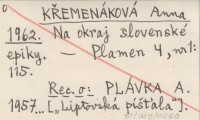 KŘEMENÁKOVÁ Anna
1962. Na okraj slovenské
epiky. — Plamen 4, nr 1:
115.
Rec. o: PLÁVKA A.
1957... [„Liptovská píšťala"].